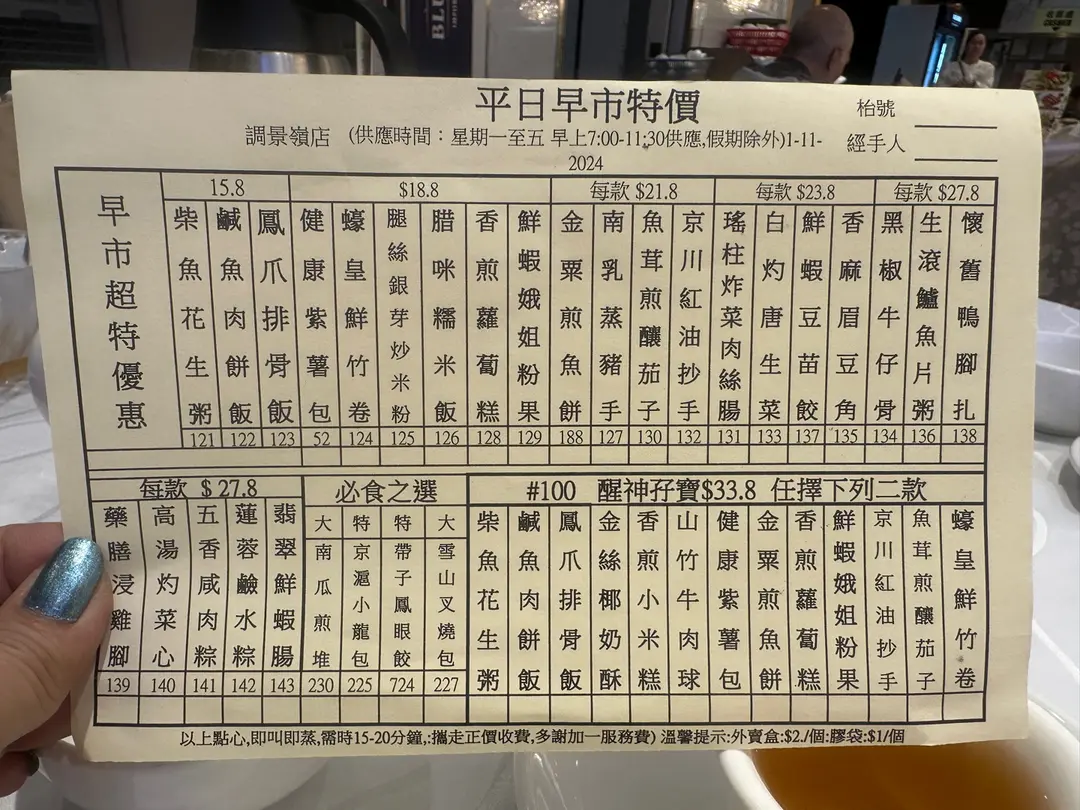 平日早市特價
枱號
調景嶺店 (供應時間：星期一至五 早上7:00-11:30供應,假期除外)1-11-2024
經手人
早市超特優惠
15.8
柴魚花生粥 121
鹹魚肉餅飯 122
鳳爪排骨飯 123
$18.8
健康紫薯包 52
蠔皇鮮竹卷 124
腿絲銀芽炒米粉 125
腊味糯米飯 126
香煎蘿蔔糕 128
鮮蝦娥姐粉果 129
每款 $21.8
金粟煎魚餅 188
南乳蒸豬手 127
魚茸煎釀茄子 130
京川紅油抄手 132
每款 $23.8
瑤柱炸菜肉絲腸 131
白灼唐生菜 133
鮮蝦豆苗餃 137
香麻眉豆角 135
每款 $27.8
黑椒牛仔骨 134
生滾鱸魚片粥 136
懷舊鴨腳扎 138
每款 $ 27.8
藥膳浸雞腳 139
高湯灼菜心 140
五香咸肉粽 141
蓮蓉鹼水粽 142
翡翠鮮蝦腸 143
必食之選
大 南瓜煎堆 230
特 京滬小龍包 225
特 帶子鳳眼餃 724
大 雪山叉燒包 227
#100 醒神孖寶$33.8 任擇下列二款
柴魚花生粥
鹹魚肉餅飯
鳳爪排骨飯
金絲椰奶酥
香煎小米糕
山竹牛肉球
健康紫薯包
金粟煎魚餅
香煎蘿蔔糕
鮮蝦娥姐粉果
京川紅油抄手
魚茸煎釀茄子
蠔皇鮮竹卷
以上點心,即叫即蒸,需時15-20分鐘,:攜走正價收費,多謝加一服務費) 溫馨提示:外賣盒:$2./個:膠袋:$1/個